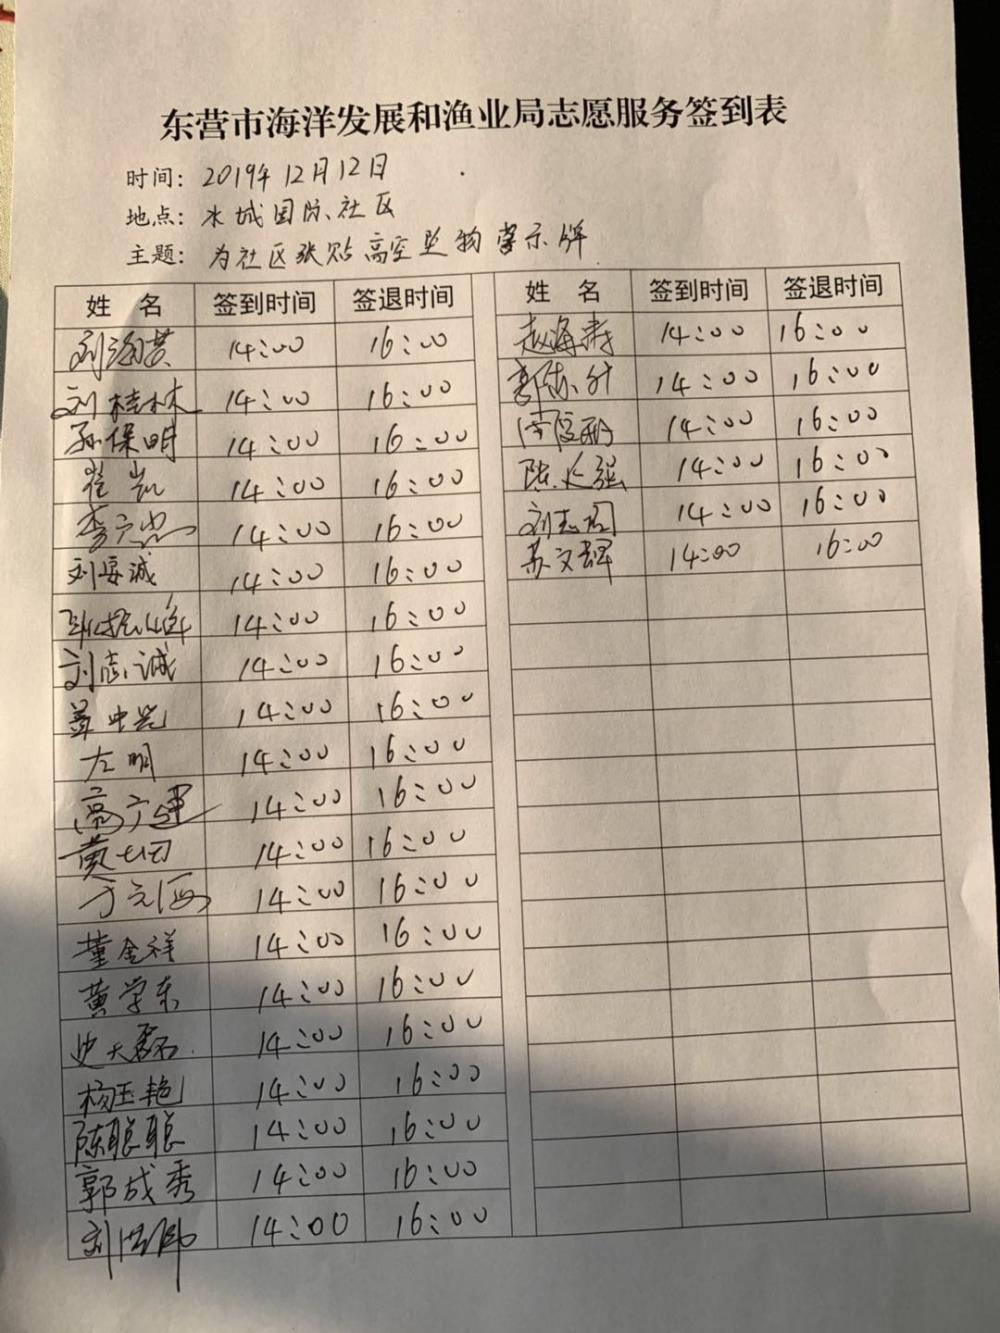 东营市海洋发展和渔业局志愿服务签到表
时间：2019年12月12日
地点：水城国际社区
主题：为社区张贴高空坠物警示牌
姓 名 签到时间 签退时间 姓 名 签到时间 签退时间
刘海英 14:00 16:00 赵海涛 14:00 16:00
刘桂林 14:00 16:00 14:00 16:00
孙保明 14:00 16:00 14:00 16:00
崔凯 14:00 16:00 陈长强 14:00 16:00
李广忠 14:00 16:00 刘志国 14:00 16:00
刘要诚 14:00 16:00 苏文辉 14:00 16:00
14:00 16:00
刘志诚 14:00 16:00
14:00 16:00
左明 14:00 16:00
高广建 14:00 16:00
黄 14:00 16:00
14:00 16:00
董金祥 14:00 16:00
黄学东 14:00 16:00
史天磊 14:00 16:00
杨玉艳 14:00 16:00
陈聪聪 14:00 16:00
郭成秀 14:00 16:00
刘 14:00 16:00